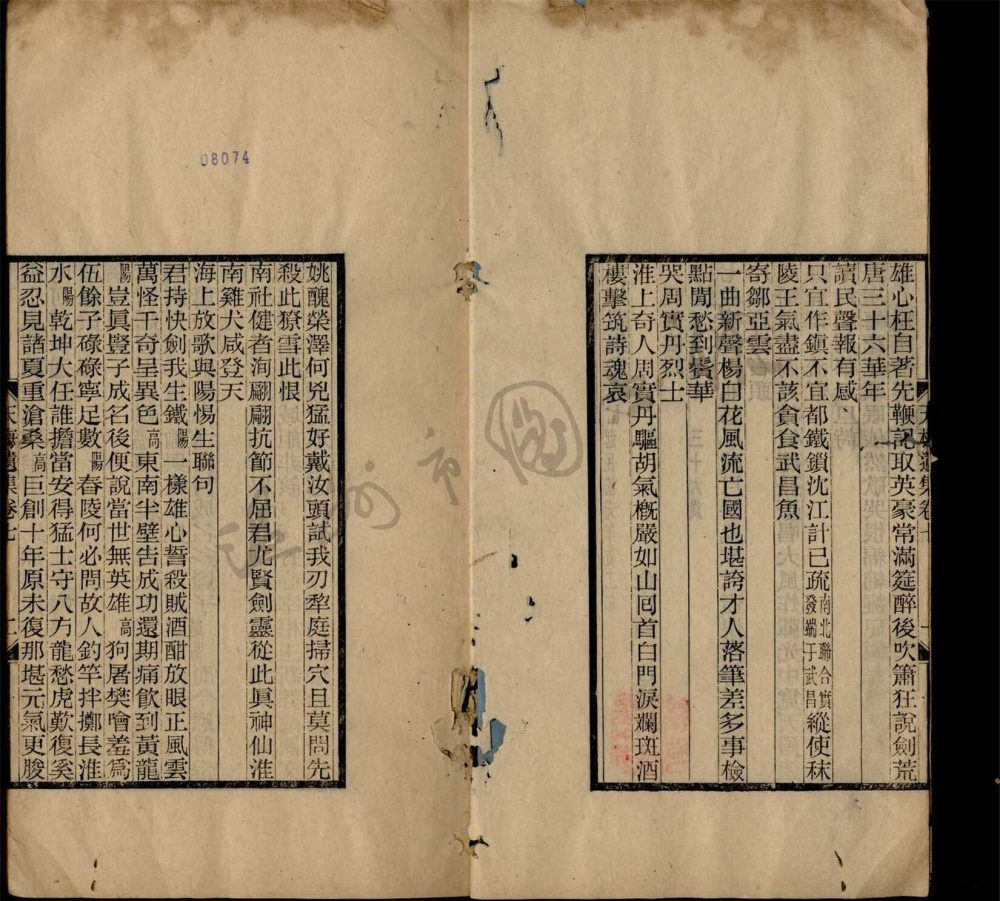 雄心枉自著先鞭記取英豪常滿筵醉後吹簫狂說劍荒
唐三十六華年
讀民聲報有感
只宜作鎭不宜都鐵鎖沈江計已疏南北聯合實發端于武昌縱使秣
陵王氣盡不該貪食武昌魚
寄鄒亞雲
一曲新聲楊白花風流亡國也堪誇才人落筆差多事檢
點閒愁到鬢華
哭周實丹烈士
淮上奇人周實丹驅胡氣概嚴如山回首白門淚斕斑酒
樓擊筑詩魂哀
姚醜榮澤何兇猛好戴汝頭試我刃犂庭掃穴且莫問先
殺此獠雪此恨
南社健者洵翩翩抗節不屈君尤賢劍靈從此眞神仙淮
南雞犬咸登天
海上放歌與陽惕生聯句
君持快劍我生鐵陽一樣雄心誓殺賊酒酣放眼正風雲
萬怪千奇呈異色高東南半壁告成功還期痛飲到黃龍
陽豈眞豎子成名後便說當世無英雄高狗屠樊噲羞爲
伍餘子碌碌寧足數陽舂陵何必問故人釣竿拌擲長淮
水陽乾坤大任誰擔當安得猛士守八方龍愁虎歎復奚
益忍見諸夏重滄桑高巨創十年原未復那堪元氣更朘
卷七
08074